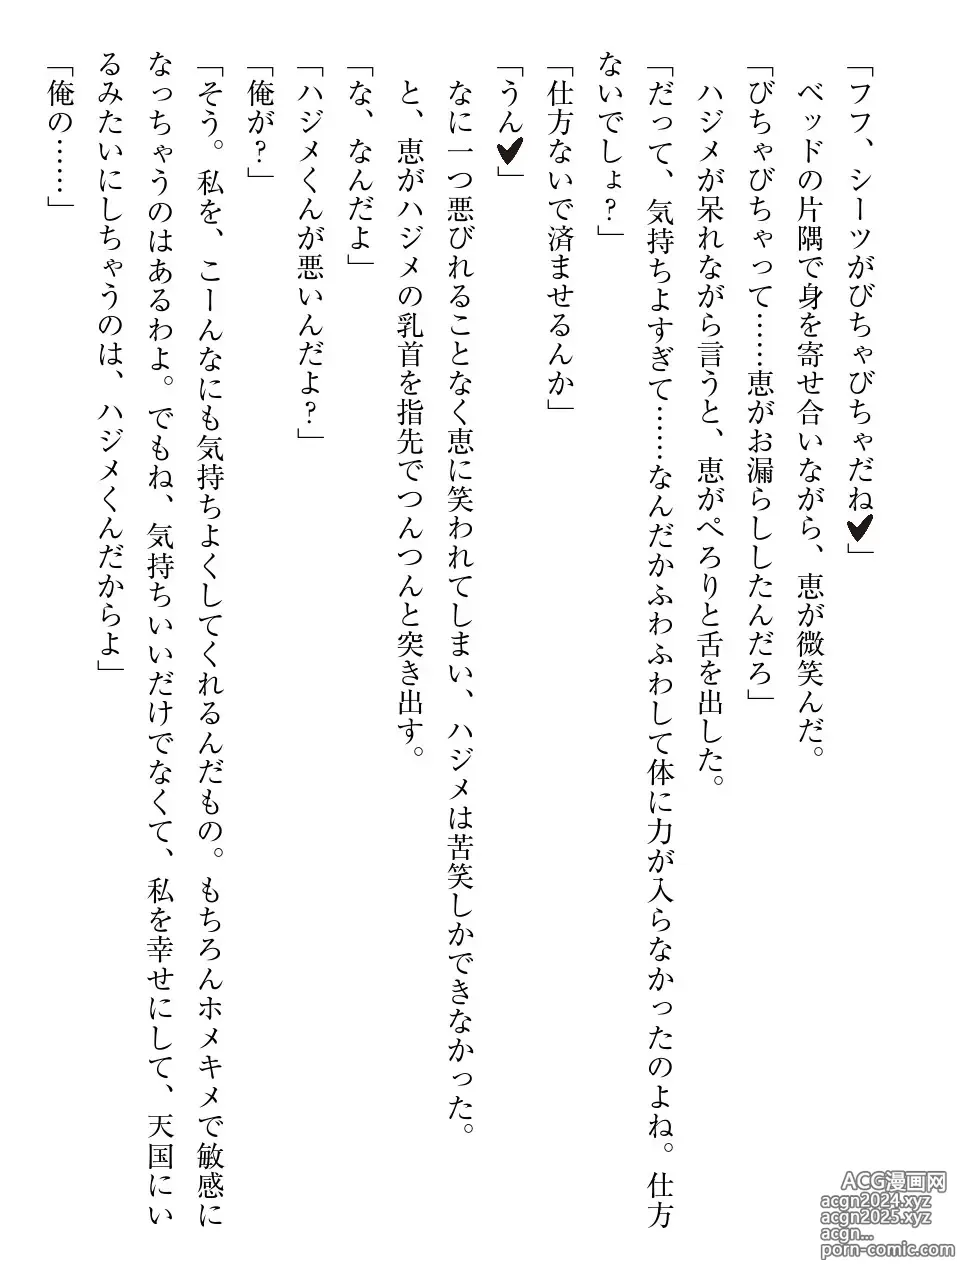 「フフ、シーツがびちゃびちゃだね♥」
ベッドの片隅で身を寄せ合いながら、恵が微笑んだ。
「びちゃびちゃって……恵がお漏らししたんだろ」
ハジメが呆れながら言うと、恵がぺろりと舌を出した。
「だって、気持ちよすぎて……なんだかふわふわして体に力が入らなかったのよね。仕方
ないでしょ?」
「仕方ないで済ませるんか」
「うん♥」
なに一つ悪びれることなく恵に笑われてしまい、ハジメは苦笑しかできなかった。
と、恵がハジメの乳首を指先でつんつんと突き出す。
「な、なんだよ」
「ハジメくんが悪いんだよ?」
「俺が?」
「そう。私を、こーんなにも気持ちよくしてくれるんだもの。もちろんホメキメで敏感に
なっちゃうのはあるわよ。でもね、気持ちいいだけでなくて、私を幸せにして、天国にい
るみたいにしちゃうのは、ハジメくんだからよ」
「俺の……」
ACG漫画网
acgn2024.xyz
acgn2025.xyz
acgn...
porn-comic.com